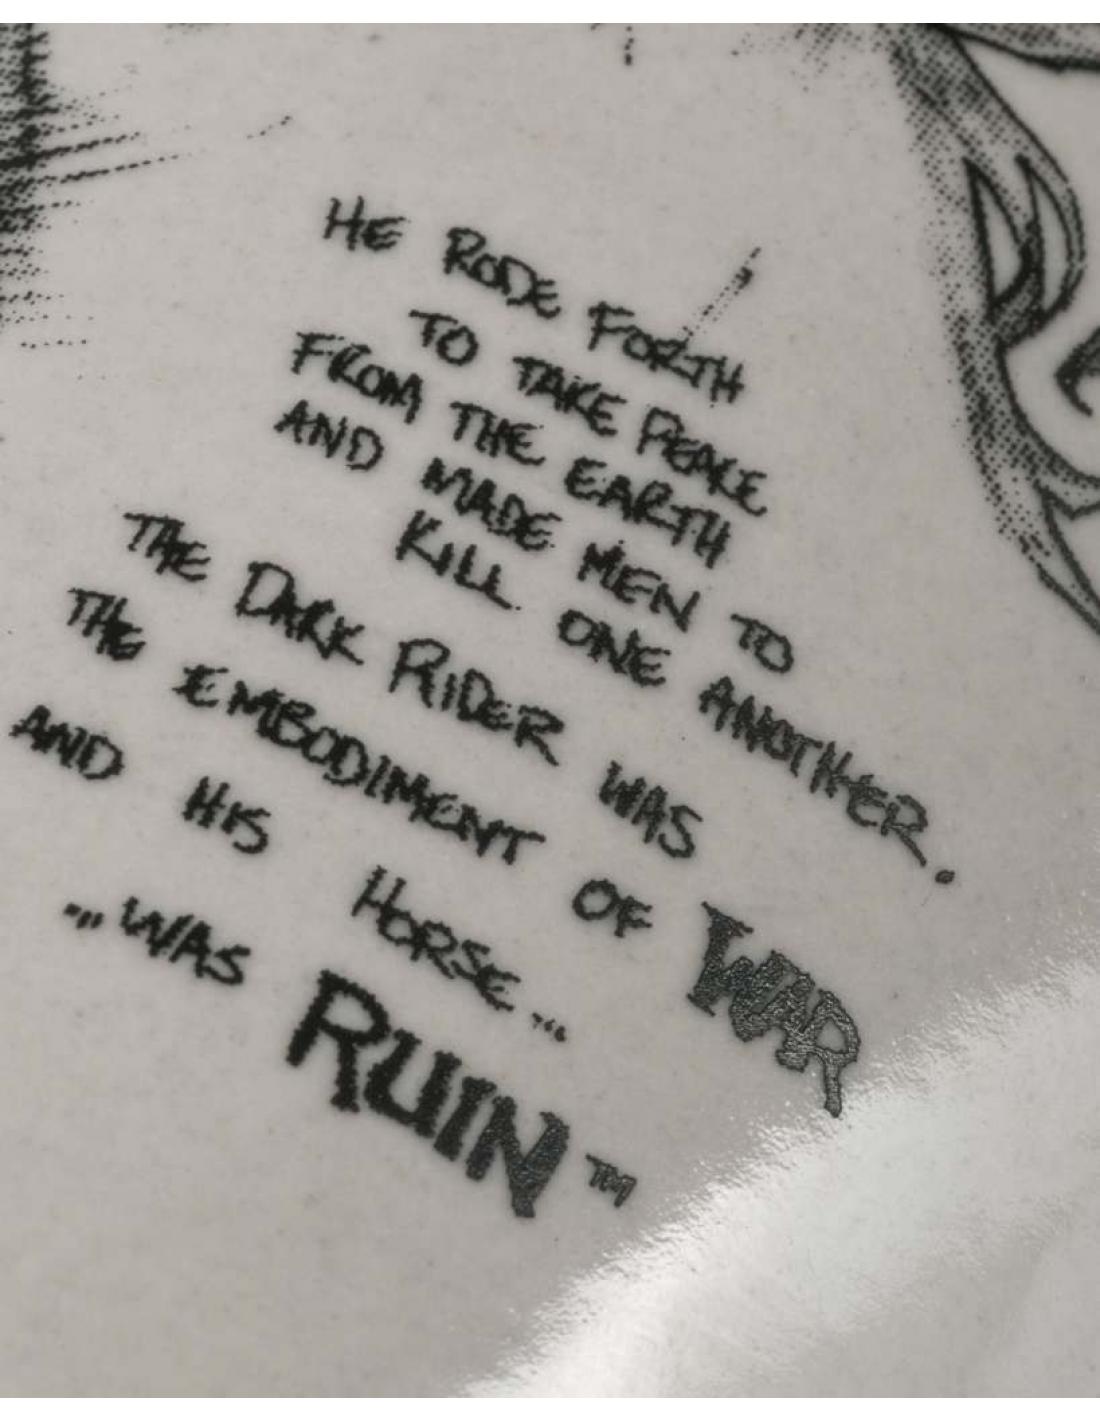 HE RODE FORTH
TO TAKE PEACE
FROM THE EARTH
AND MADE MEN TO
KILL ONE ANOTHER.
THE DARK RIDER WAS
THE EMBODIMENT OF WAR
AND HIS HORSE...
...WAS RUIN™